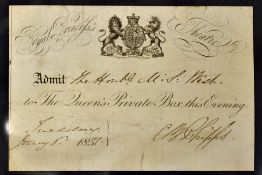 Royal Princess's Theatre
Admit The Honble M. S. Wish
to The Queen's Private Box this Evening
Tuesday
Jany 6 1851. C B Phipps